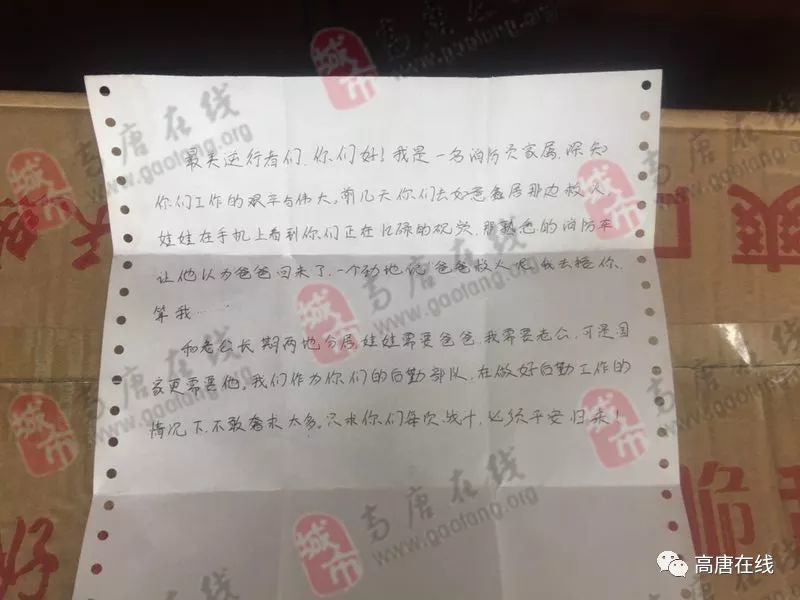 最美逆行者们，你们好！我是一名消防员家属，深知
你们工作的艰辛与伟大。前几天你们去如意鑫居那边救火，
娃娃在手机上看到你们正在忙碌的视频，那熟悉的消防车
让他以为爸爸回来了，一个劲地说"爸爸救火呢，我去接你、
等我……
和老公长期两地分居，娃娃需要爸爸，我需要老公，可是国
家更需要他。我们作为你们的后勤部队，在做好后勤工作的
情况下，不敢奢求太多，只求你们每次战斗，必须平安归来！
城市
高唐在线
www.gaotang.org
高唐在线